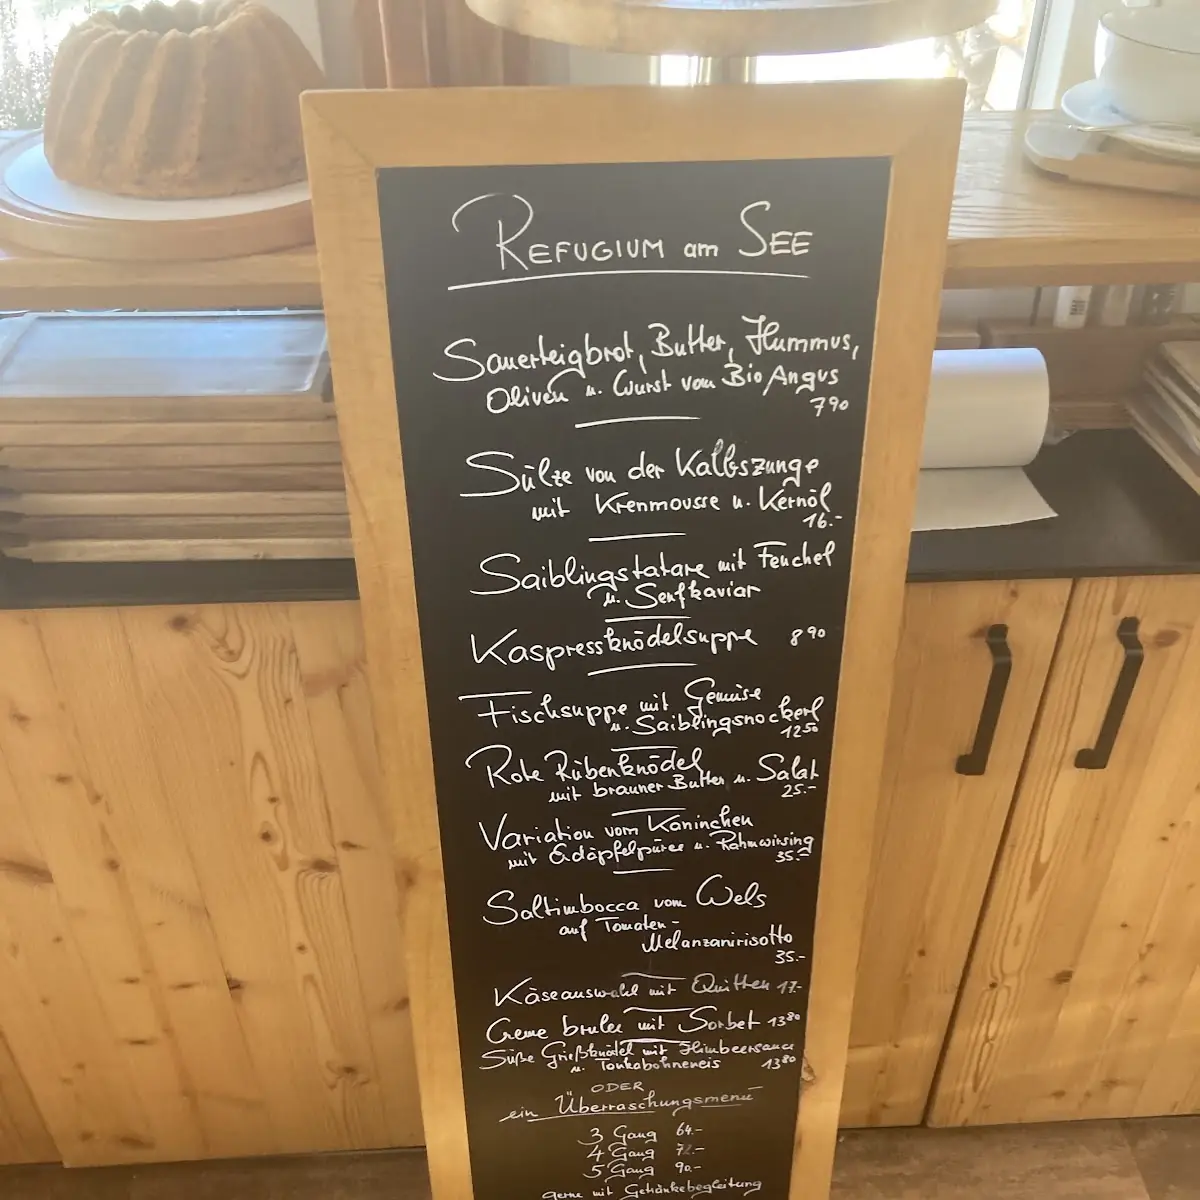 REFUGIUM am SEE
Sauerteigbrot, Butter, Hummus,
Oliven u. Wurst vom Bio Angus
7 90
Sülze von der Kalbszunge
mit Krenmousse u. Kernöl
16.-
Saiblingstatare mit Fenchel
u. Senfkaviar
Kaspressknödelsuppe 8 90
Fischsuppe mit Gemüse
u. Saiblingsnockerl
12 50
Rote Rübenknödel
mit brauner Butter u. Salat
25.-
Variation vom Kaninchen
mit Erdäpfelpüree u. Rahmwirsing
35.-
Saltimbocca vom Wels
auf Tomaten-
Melanzanirisotto
35.-
Käseauswahl mit Quitten 17.-
Creme brulee mit Sorbet 13 80
Süße Grießknödel mit Himbeersauce
u. Tonkabohneneis 13 80
ODER
ein Überraschungsmenü
3 Gang 64.-
4 Gang 72.-
5 Gang 90.-
gerne mit Getränkebegleitung